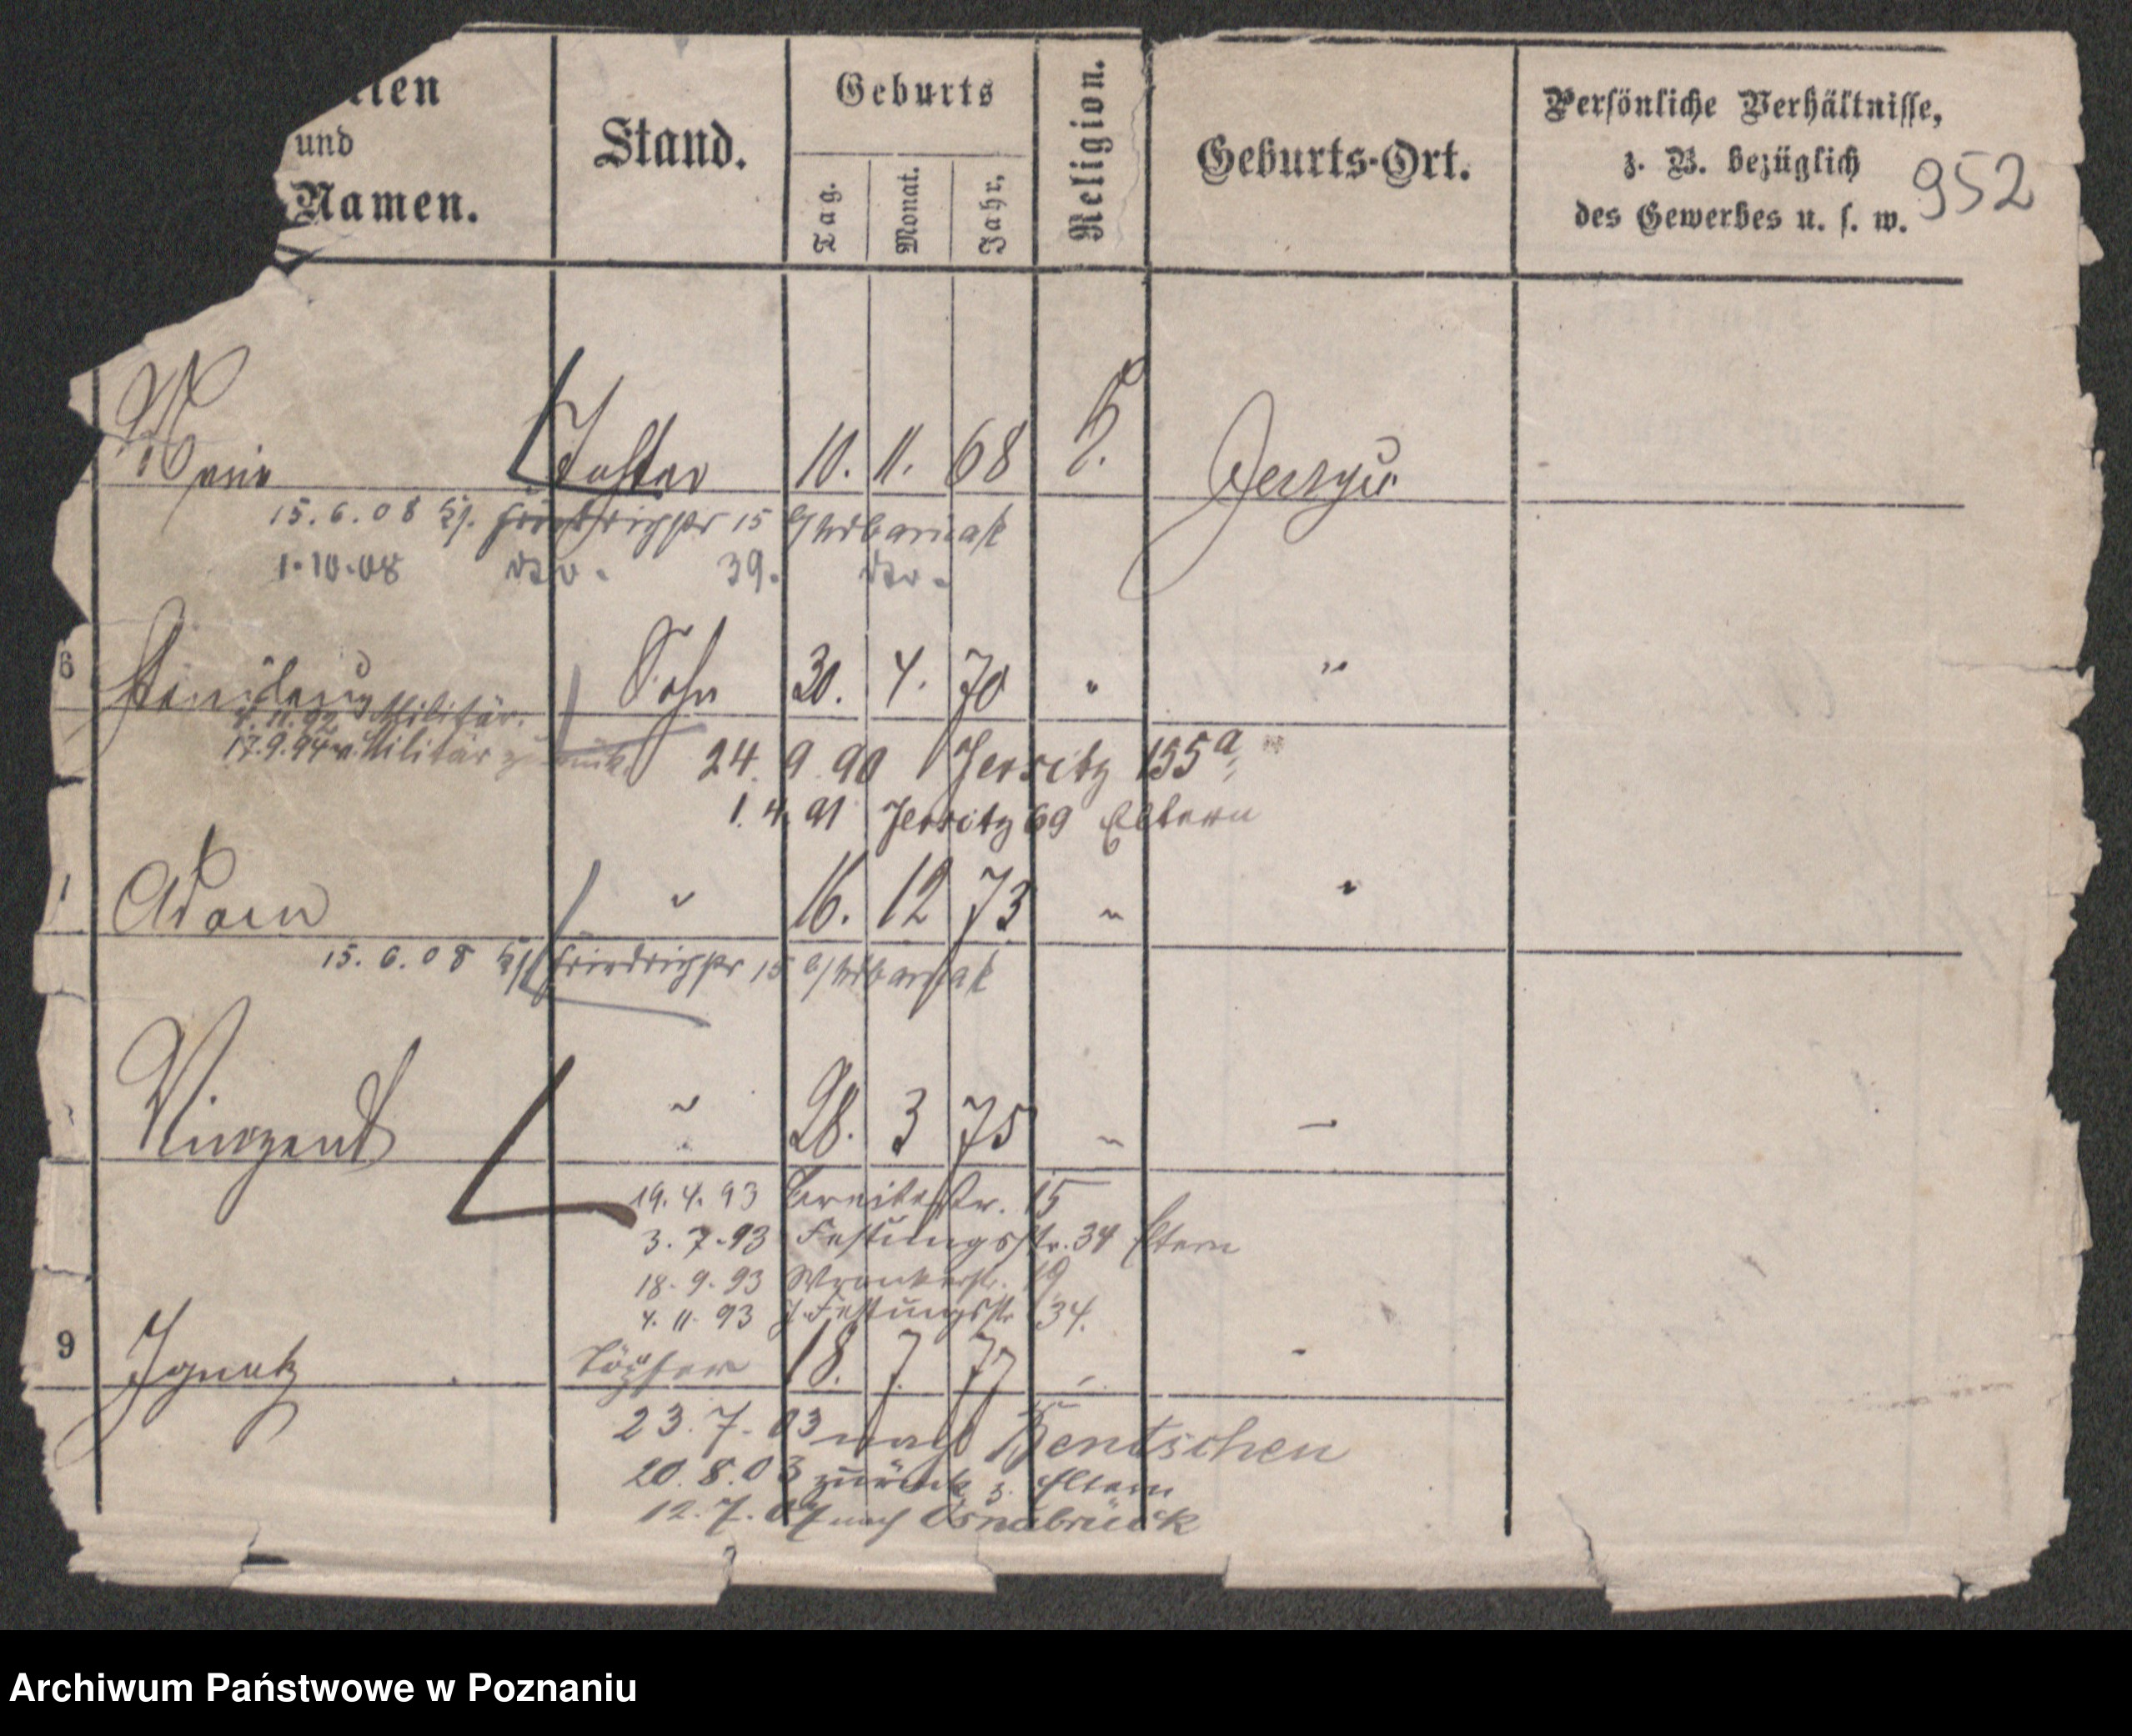 und
Namen.
Stand.
Geburts
Tag.
Monat.
Jahr.
Religion.
Geburts-Ort.
Persönliche Verhältnisse,
z. B. bezüglich
des Gewerbes u. s. w.
952
Marie Tochter 10. 11. 68
15.6.08 15
1.10.08 39.
6 Sohn 30. 4. 70 " "
Militär.
17.9.94 v. Militär zurück.
24. 9 90 Jersitz 155a
1. 4. 91 Jersitz 69 Eltern
Adam " 16. 12 73 " "
15.6.08 15
Vinzent " 28. 3 75 " "
19. 4. 93 Breitestr. 15
3. 7. 93 Festungsstr. 34 Eltern
18. 9. 93 Wronkerstr. 19
4. 11. 93 Festungsstr 34.
9 Ignatz Töpfer 18. 7. 77
23. 7. 03 nach Bentschen
20. 8. 03 zurück z. Eltern
12. 7. 07 nach Osnabrück
Archiwum Państwowe w Poznaniu